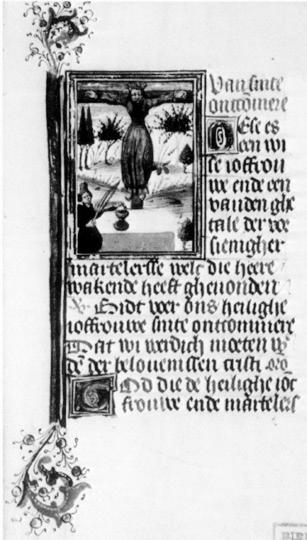 Van sinte
ontcomere
Ese es
een wi
se ioffrou
we ende een
vanden ghe
tale der we
sienigher
martelersse welc die heere
wakende heeft ghevonden
Bidt voer ons heilighe
ioffrouwe sinte ontcommere
Dat wi werdich moeten
der belouenissen cristi
God die de heilighe iof
frouwe ende martelers